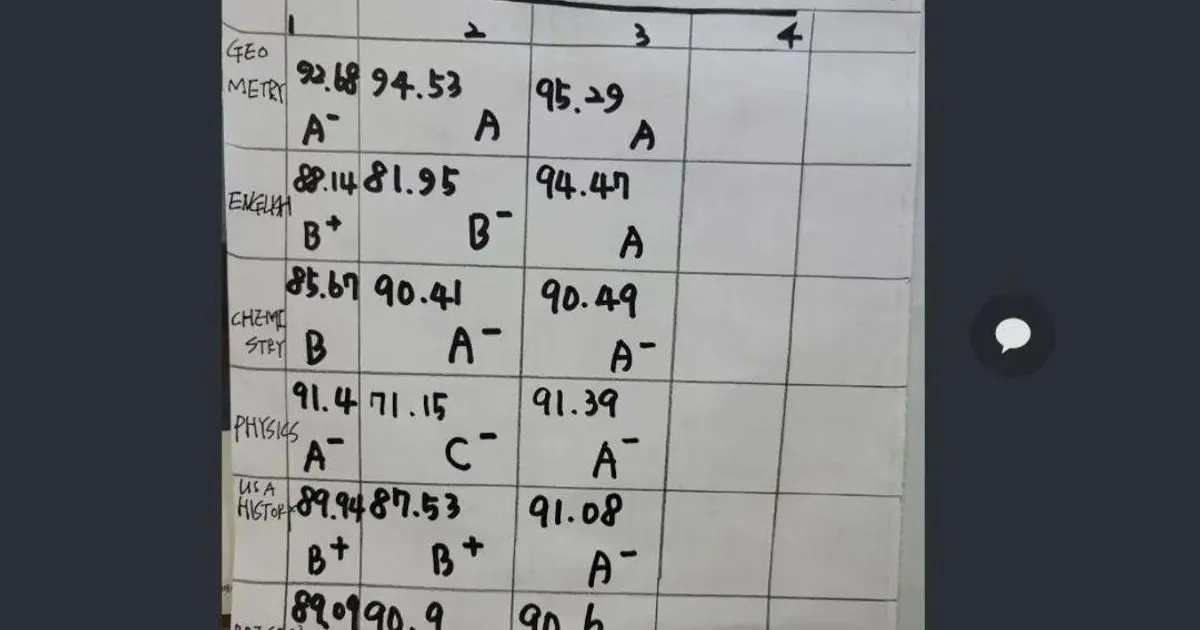 1 2 3 4
GEO
METRY 92.68 94.53 95.29
A- A A
88.14 81.95 94.47
ENGLISH
B+ B- A
85.67 90.41 90.49
CHEMI
STRY B A- A-
91.4 71.15 91.39
PHYSICS
A- C- A-
USA
HISTORY 89.94 87.53 91.08
B+ B+ A-
89.09 90.9 90.6